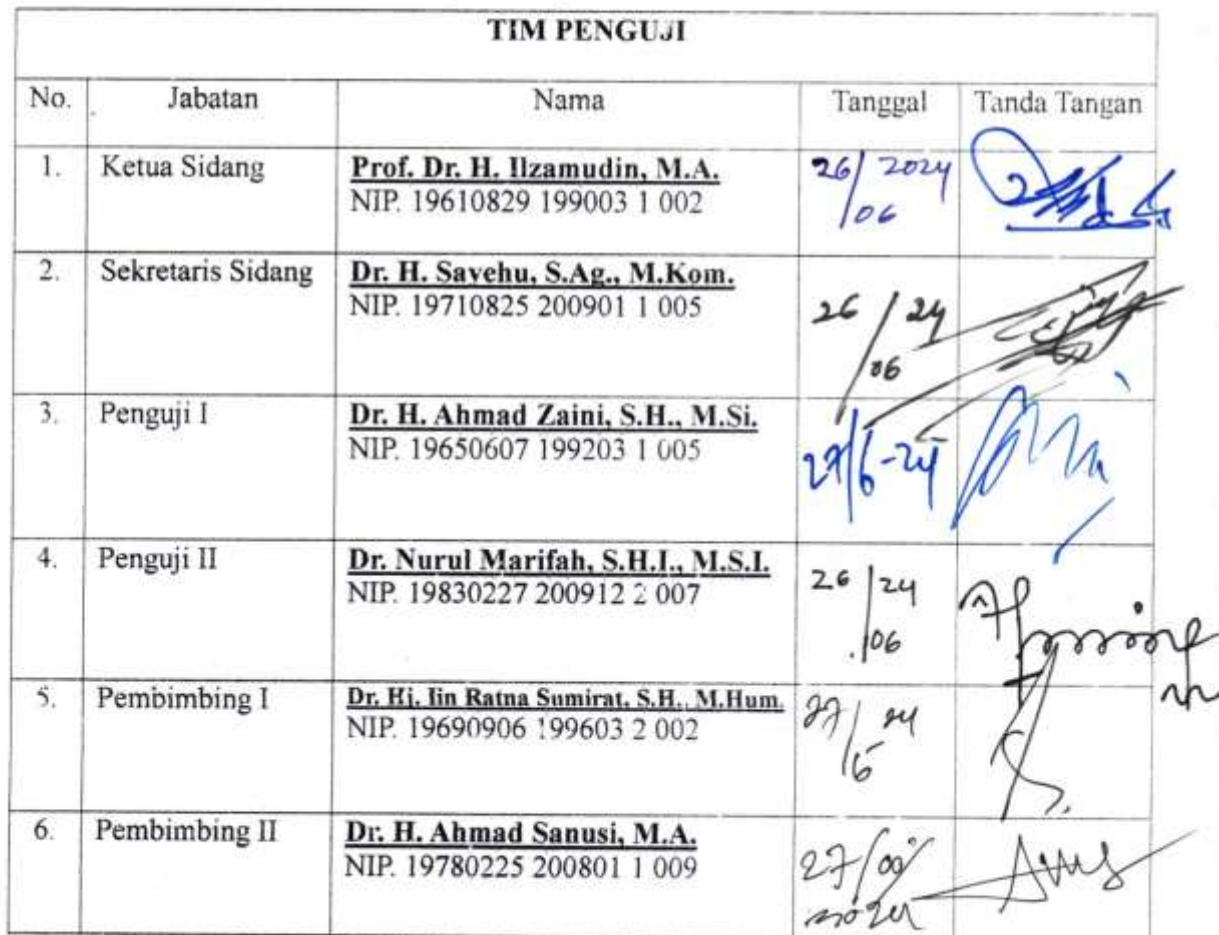 TIM PENGUJI
No. Jabatan Nama Tanggal Tanda Tangan
1. Ketua Sidang Prof. Dr. H. Ilzamudin, M.A. 26/06 2024
NIP. 19610829 199003 1 002
2. Sekretaris Sidang Dr. H. Sayehu, S.Ag., M.Kom.
NIP. 19710825 200901 1 005 26/06 24
3. Penguji I Dr. H. Ahmad Zaini, S.H., M.Si.
NIP. 19650607 199203 1 005 27/6-24
4. Penguji II Dr. Nurul Marifah, S.H.I., M.S.I. 26/06 24
NIP. 19830227 200912 2 007
5. Pembimbing I Dr. Hj. Iin Ratna Sumirat, S.H., M.Hum. 27/6 24
NIP. 19690906 199603 2 002
6. Pembimbing II Dr. H. Ahmad Sanusi, M.A.
NIP. 19780225 200801 1 009 27/